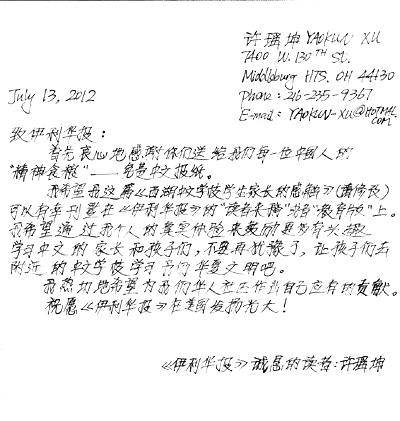 许瑶坤 YAOKUN XU
7400 W. 130TH St.
Middleburg HTS. OH 44130
July 13, 2012
Phone: 216-235-9367
E-mail: YAOKUN-XU@HOTMAIL.COM
致伊利华报:
首先衷心地感谢你们送给我们每一位中国人的
"精神食粮"——免费中文报纸。
我希望我这篇《西湖中文学校学生家长的感触》(请修改)
可以有幸刊登在《伊利华报》的"读者来稿"或者"教育版"上。
我希望通过我个人的真实体验来鼓励更多有兴趣
学习中文的家长和孩子们,不要再犹豫了,让孩子们去
附近的中文学校学习我们华夏文明吧。
我热切地希望为我们华人社区作出自己应有的贡献。
祝愿《伊利华报》在美国发扬光大!
《伊利华报》诚恳的读者:许瑶坤